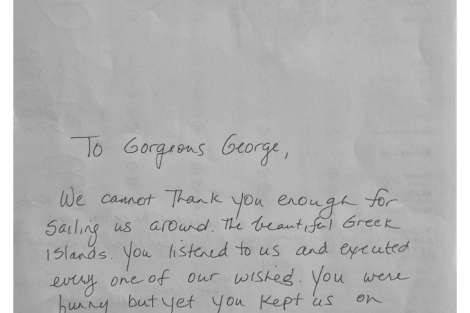 To Gorgeous George,
We cannot Thank you enough for
Sailing us around. The beautiful Greek
Islands. You listened to us and executed
every one of our wished. You were
funny but yet you kept us on